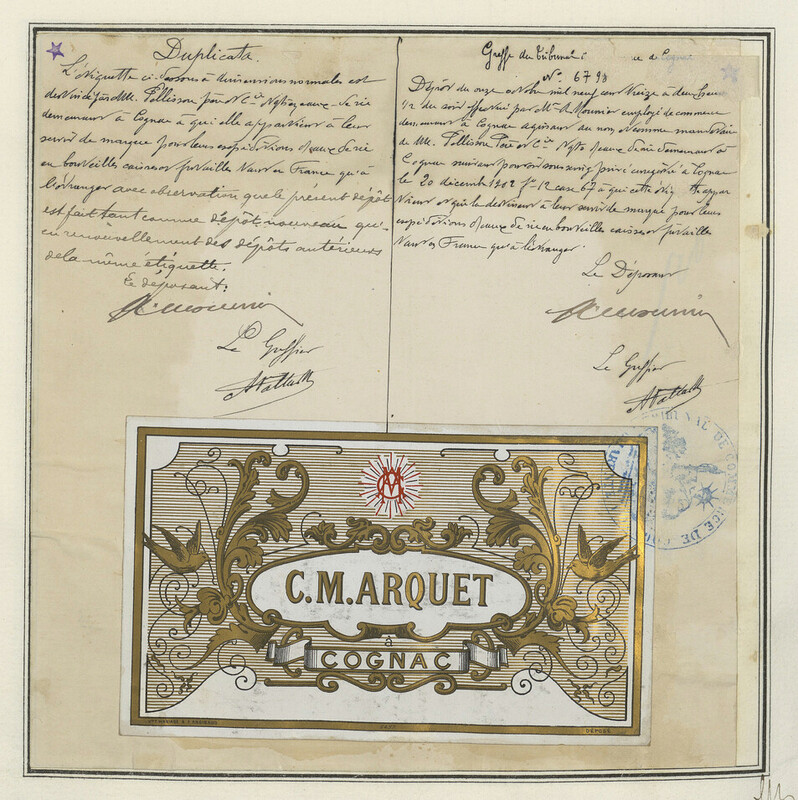 Duplicata.
L'étiquette ci-dessous à dimensions normales est
destinée par MM. Pellisson père & Cie Négts en eaux-de-vie
demeurant à Cognac à qui elle appartient à leur
servir de marque pour leurs expéditions d'eaux-de-vie
en bouteilles caisses et futailles tant en France qu'à
l'étranger avec observation que le présent dépôt
est fait tant comme dépôt nouveau qu'-
en renouvellement des dépôts antérieurs
de la même étiquette.
Le déposant:
Le Greffier
Greffe du Tribunal de Cognac
No. 6793
Dépôt du onze octobre mil neuf cent treize à deux heures
1/2 du soir effectué par Mr. A. Mounier employé de commerce
demeurant à Cognac agissant au nom et comme mandataire
de MM. Pellisson Père & Cie Négts d'eaux-de-vie demeurant à
Cognac suivant pouvoir sous seing privé enregistré à Cognac
le 20 décembre 1912 fo 12 case 67 à qui cette étiquette appar
tient et qui la destinent à leur servir de marque pour leurs
expéditions d'eaux-de-vie en bouteilles caisses et futailles
tant en France qu'à l'étranger.
Le Déposant
Le Greffier
TRIBUNAL DE COMMERCE DE
C.M.ARQUET
à
COGNAC
DÉPOSÉ